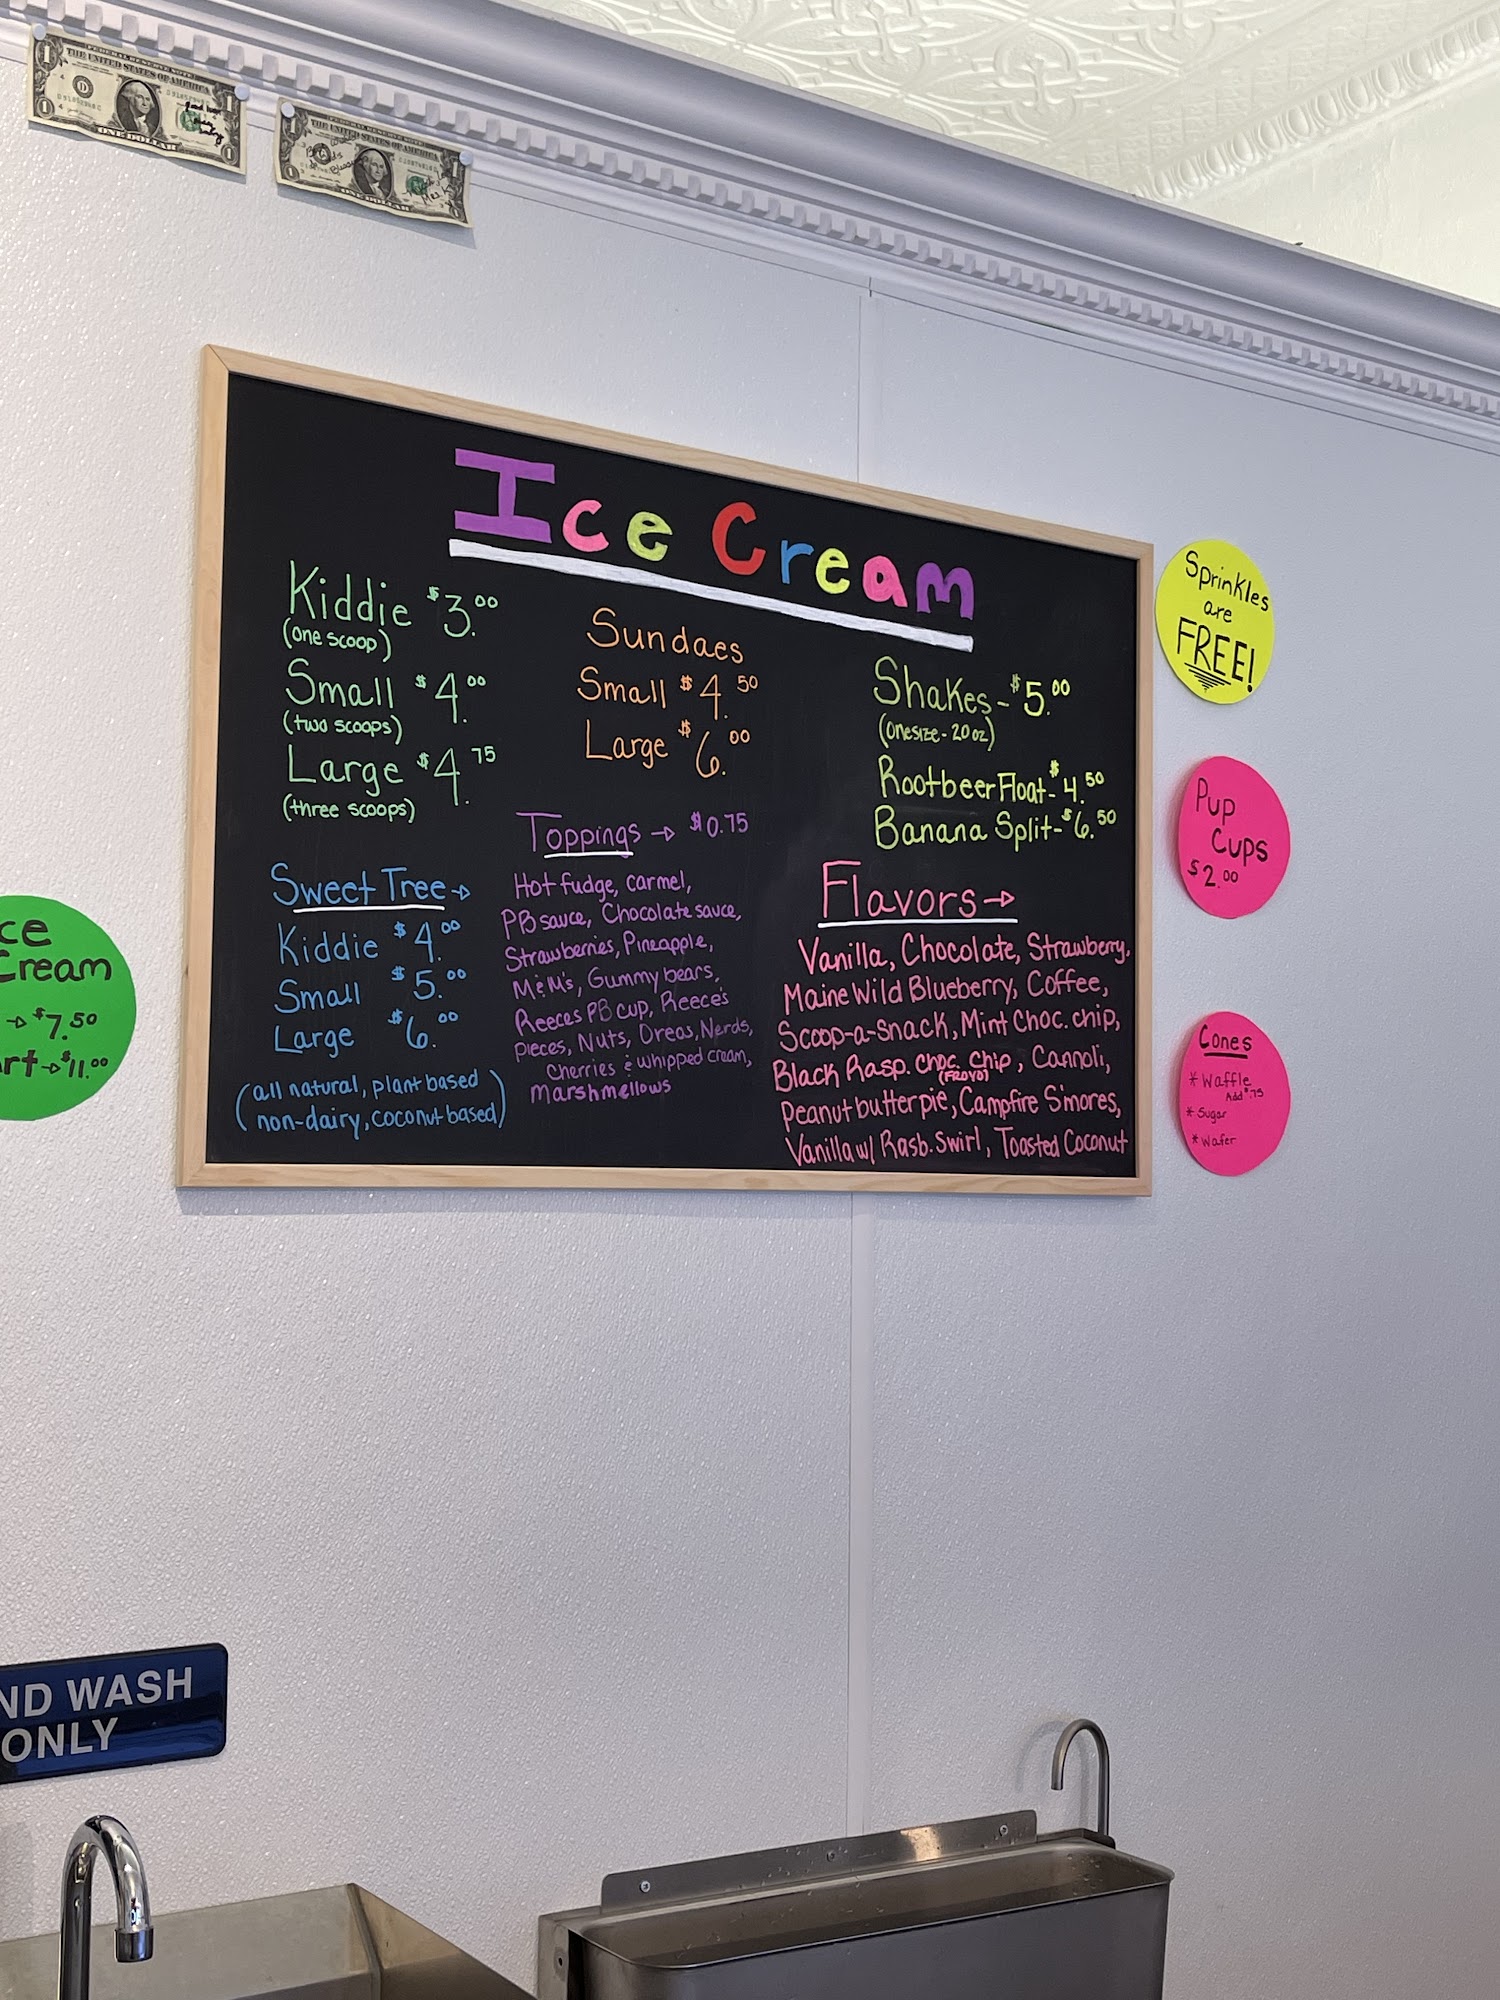 FEDERAL RESERVE NOTE
THE UNITED STATES OF AMERICA
ONE DOLLAR
THE UNITED STATES OF AMERICA
ONE DOLLAR
Ice Cream
Kiddie $3.00
(one scoop)
Small $4.00
(two scoops)
Large $4.75
(three scoops)
Sundaes
Small $4.50
Large $6.00
Shakes- $5.00
(one size - 20 oz)
Rootbeer Float- $4.50
Banana Split- $6.50
Sweet Tree→
Kiddie $4.00
Small $5.00
Large $6.00
(all natural, plant based
non-dairy, coconut based)
Toppings → $0.75
Hot fudge, carmel,
PB sauce, Chocolate sauce,
Strawberries, Pineapple,
M&M's, Gummy bears,
Reeces PB cup, Reece's
pieces, Nuts, Oreos, Nerds,
Cherries & whipped cream,
Marshmellows
Flavors→
Vanilla, Chocolate, Strawberry,
Maine Wild Blueberry, Coffee,
Scoop-a-snack, Mint Choc. chip,
Black Rasp. Choc. Chip, Cannoli,
(FROYO)
Peanut butter pie, Campfire S'mores,
Vanilla w/ Rasb. Swirl, Toasted Coconut
Sprinkles
are
FREE!
Pup
Cups
$2.00
Cones
* Waffle
Add $.75
* Sugar
* Wafer
ce
Cream
→ $7.50
rt→$11.00
ND WASH
ONLY